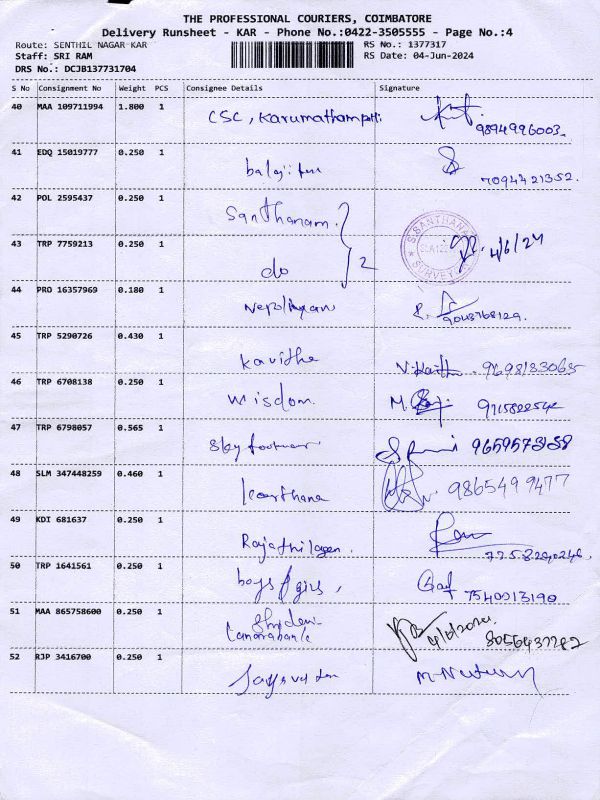 THE PROFESSIONAL COURIERS, COIMBATORE
Delivery Runsheet - KAR - Phone No.:0422-3505555 - Page No.:4
Route: SENTHIL NAGAR-KAR RS No.: 1377317
Staff: SRI RAM RS Date: 04-Jun-2024
DRS No.: DCJB137731704
S No Consignment No Weight PCS Consignee Details Signature
40 MAA 109711994 1.800 1 CSC, Karumathampti 9894996003
41 EDQ 15019777 0.250 1 7094421352
42 POL 2595437 0.250 1 Santhanam
43 TRP 7759213 0.250 1 do 2 S.SANTHANA 4/6/24
44 PRO 16357969 0.180 1 9043768129
45 TRP 5290726 0.430 1 Kavitha 9698133065
46 TRP 6708138 0.250 1 Wisdom
47 TRP 6798057 0.565 1 Sky footwear 9659573158
48 SLM 347448259 0.460 1 9865499477
49 KDI 681637 0.250 1 Rajathilagen
50 TRP 1641561 0.250 1 boys & girls, 7540013190
51 MAA 865758600 0.250 1 Canarabank 8056437282
52 RJP 3416700 0.250 1